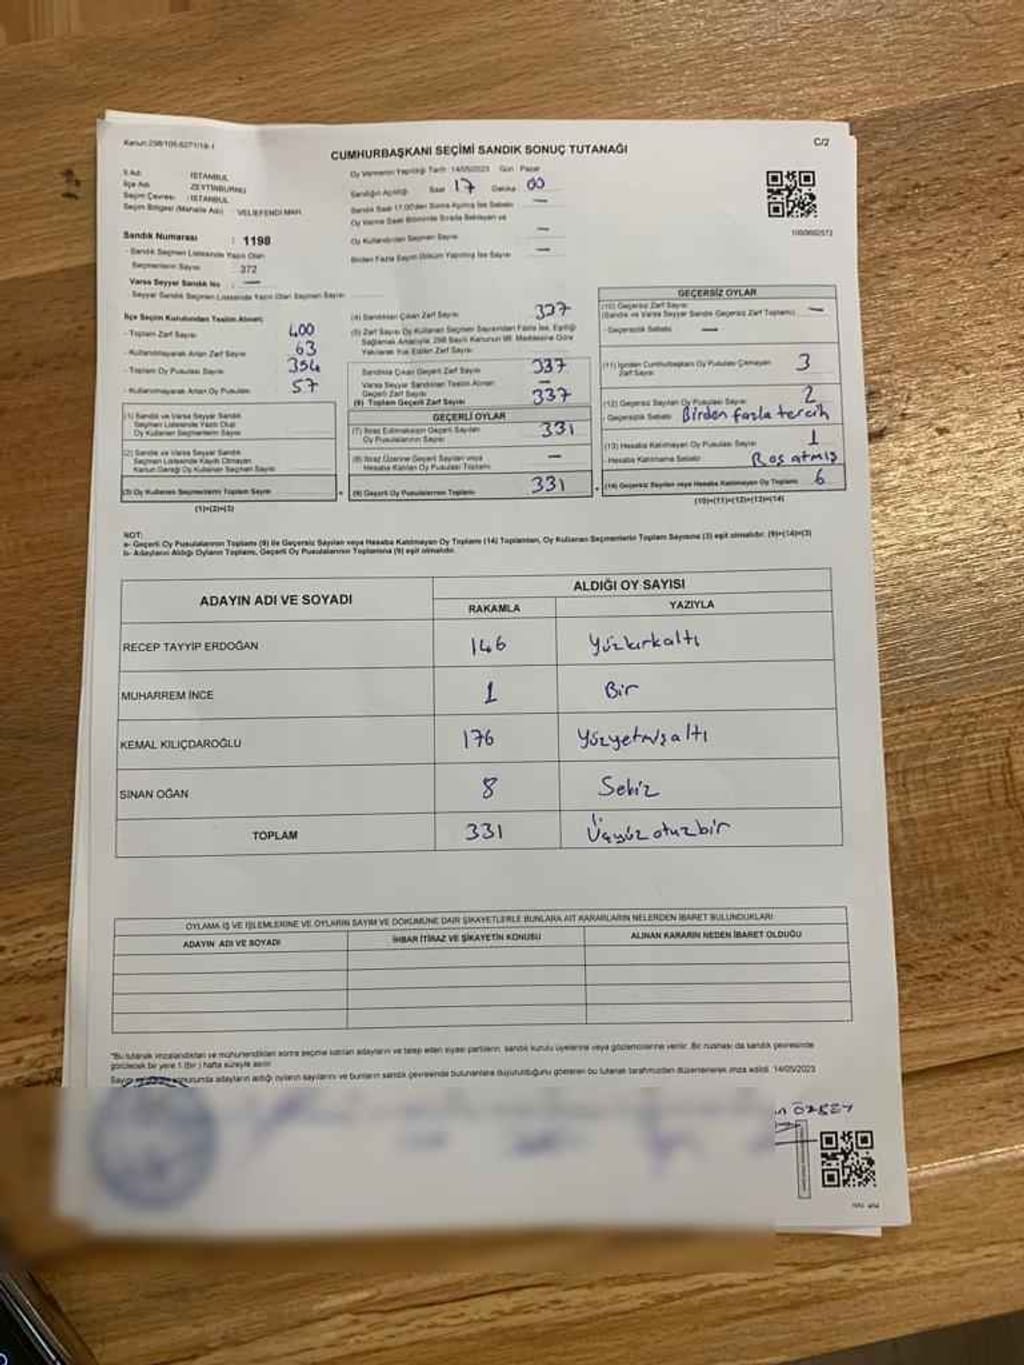 Kanun:298/105-6271/19-1
C/2
CUMHURBAŞKANI SEÇİMİ SANDIK SONUÇ TUTANAĞI
İl Adı : İSTANBUL
İlçe Adı : ZEYTİNBURNU
Seçim Çevresi : İSTANBUL
Seçim Bölgesi (Mahalle Adı) : VELİEFENDİ MAH.
Sandık Numarası : 1198
- Sandık Seçmen Listesinde Yazılı Olan
Seçmenlerin Sayısı : 372
Varsa Seyyar Sandık No : —
- Seyyar Sandık Seçmen Listesinde Yazılı Olan Seçmen Sayısı:
Oy Vermenin Yapıldığı Tarih: 14/05/2023 Gün : Pazar
Sandığın Açıldığı Saat 17 Dakika 00
Sandık Saat 17.00'den Sonra Açılmış İse Sebebi: —
Oy Verme Saati Bitiminde Sırada Bekleyen ve
Oy Kullandırılan Seçmen Sayısı: —
Birden Fazla Sayım Döküm Yapılmış İse Sayısı: —
İlçe Seçim Kurulundan Teslim Alınan;
- Toplam Zarf Sayısı: 400
- Kullanılmayarak Artan Zarf Sayısı: 63
- Toplam Oy Pusulası Sayısı: 394
- Kullanılmayarak Artan Oy Pusulası: 57
(1) Sandık ve Varsa Seyyar Sandık
Seçmen Listesinde Yazılı Olup
Oy Kullanan Seçmenlerin Sayısı
(2) Sandık ve Varsa Seyyar Sandık
Seçmen Listesinde Kayıtlı Olmayan
Kanun Gereği Oy Kullanan Seçmen Sayısı
(3) Oy Kullanan Seçmenlerin Toplam Sayısı
(1)+(2)=(3)
(4) Sandıktan Çıkan Zarf Sayısı: 337
(5) Zarf Sayısı Oy Kullanan Seçmen Sayısından Fazla İse, Eşitliği
Sağlamak Amacıyla, 298 Sayılı Kanunun 98. Maddesine Göre
Yakılarak Yok Edilen Zarf Sayısı:
Sandıkta Çıkan Geçerli Zarf Sayısı: 337
Varsa Seyyar Sandıktan Teslim Alınan
Geçerli Zarf Sayısı: —
(6) Toplam Geçerli Zarf Sayısı: 337
GEÇERLİ OYLAR
(7) İtiraz Edilmeksizin Geçerli Sayılan
Oy Pusulalarının Sayısı: 331
(8) İtiraz Üzerine Geçerli Sayılan veya
Hesaba Katılan Oy Pusulası Toplamı: —
(9) Geçerli Oy Pusulalarının Toplamı: 331
GEÇERSİZ OYLAR
(10) Geçersiz Zarf Sayısı:
(Sandık ve Varsa Seyyar Sandık Geçersiz Zarf Toplamı) —
- Geçersizlik Sebebi: —
(11) İçinden Cumhurbaşkanı Oy Pusulası Çıkmayan
Zarf Sayısı: 3
(12) Geçersiz Sayılan Oy Pusulası Sayısı: 2
- Geçersizlik Sebebi: Birden fazla tercih
(13) Hesaba Katılmayan Oy Pusulası Sayısı: 1
- Hesaba Katılmama Sebebi: Boş atmış
(14) Geçersiz Sayılan veya Hesaba Katılmayan Oy Toplamı: 6
(10)+(11)+(12)+(13)=(14)
NOT:
a- Geçerli Oy Pusulalarının Toplamı (9) ile Geçersiz Sayılan veya Hesaba Katılmayan Oy Toplamı (14) Toplamları, Oy Kullanan Seçmenlerin Toplam Sayısına (3) eşit olmalıdır. (9)+(14)=(3)
b- Adayların Aldığı Oyların Toplamı, Geçerli Oy Pusulalarının Toplamına (9) eşit olmalıdır.
ADAYIN ADI VE SOYADI
ALDIĞI OY SAYISI
RAKAMLA YAZIYLA
RECEP TAYYİP ERDOĞAN 146 Yüzkırkaltı
MUHARREM İNCE 1 Bir
KEMAL KILIÇDAROĞLU 176 Yüzyetmişaltı
SİNAN OĞAN 8 Sekiz
TOPLAM 331 Üçyüzotuzbir
OYLAMA İŞ VE İŞLEMLERİNE VE OYLARIN SAYIM VE DÖKÜMÜNE DAİR ŞİKAYETLERLE BUNLARA AİT KARARLARIN NELERDEN İBARET BULUNDUKLARI
ADAYIN ADI VE SOYADI İHBAR İTİRAZ VE ŞİKAYETİN KONUSU ALINAN KARARIN NEDEN İBARET OLDUĞU
"Bu tutanak imzalandıktan ve mühürlendikten sonra seçime katılan adayların ve talep eden siyasi partilerin, sandık kurulu üyelerine veya gözlemcilerine verilir. Bir nüshası da sandık çevresinde
görülecek bir yere 1 (Bir) hafta süreyle asılır.
adayların aldığı oyların sayılarını ve bunların sandık çevresinde bulunanlara duyurulduğunu gösteren bu tutanak tarafımızdan düzenlenerek imza edildi. 14/05/2023